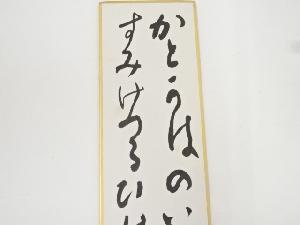 かとうはのい
すみけつるひは